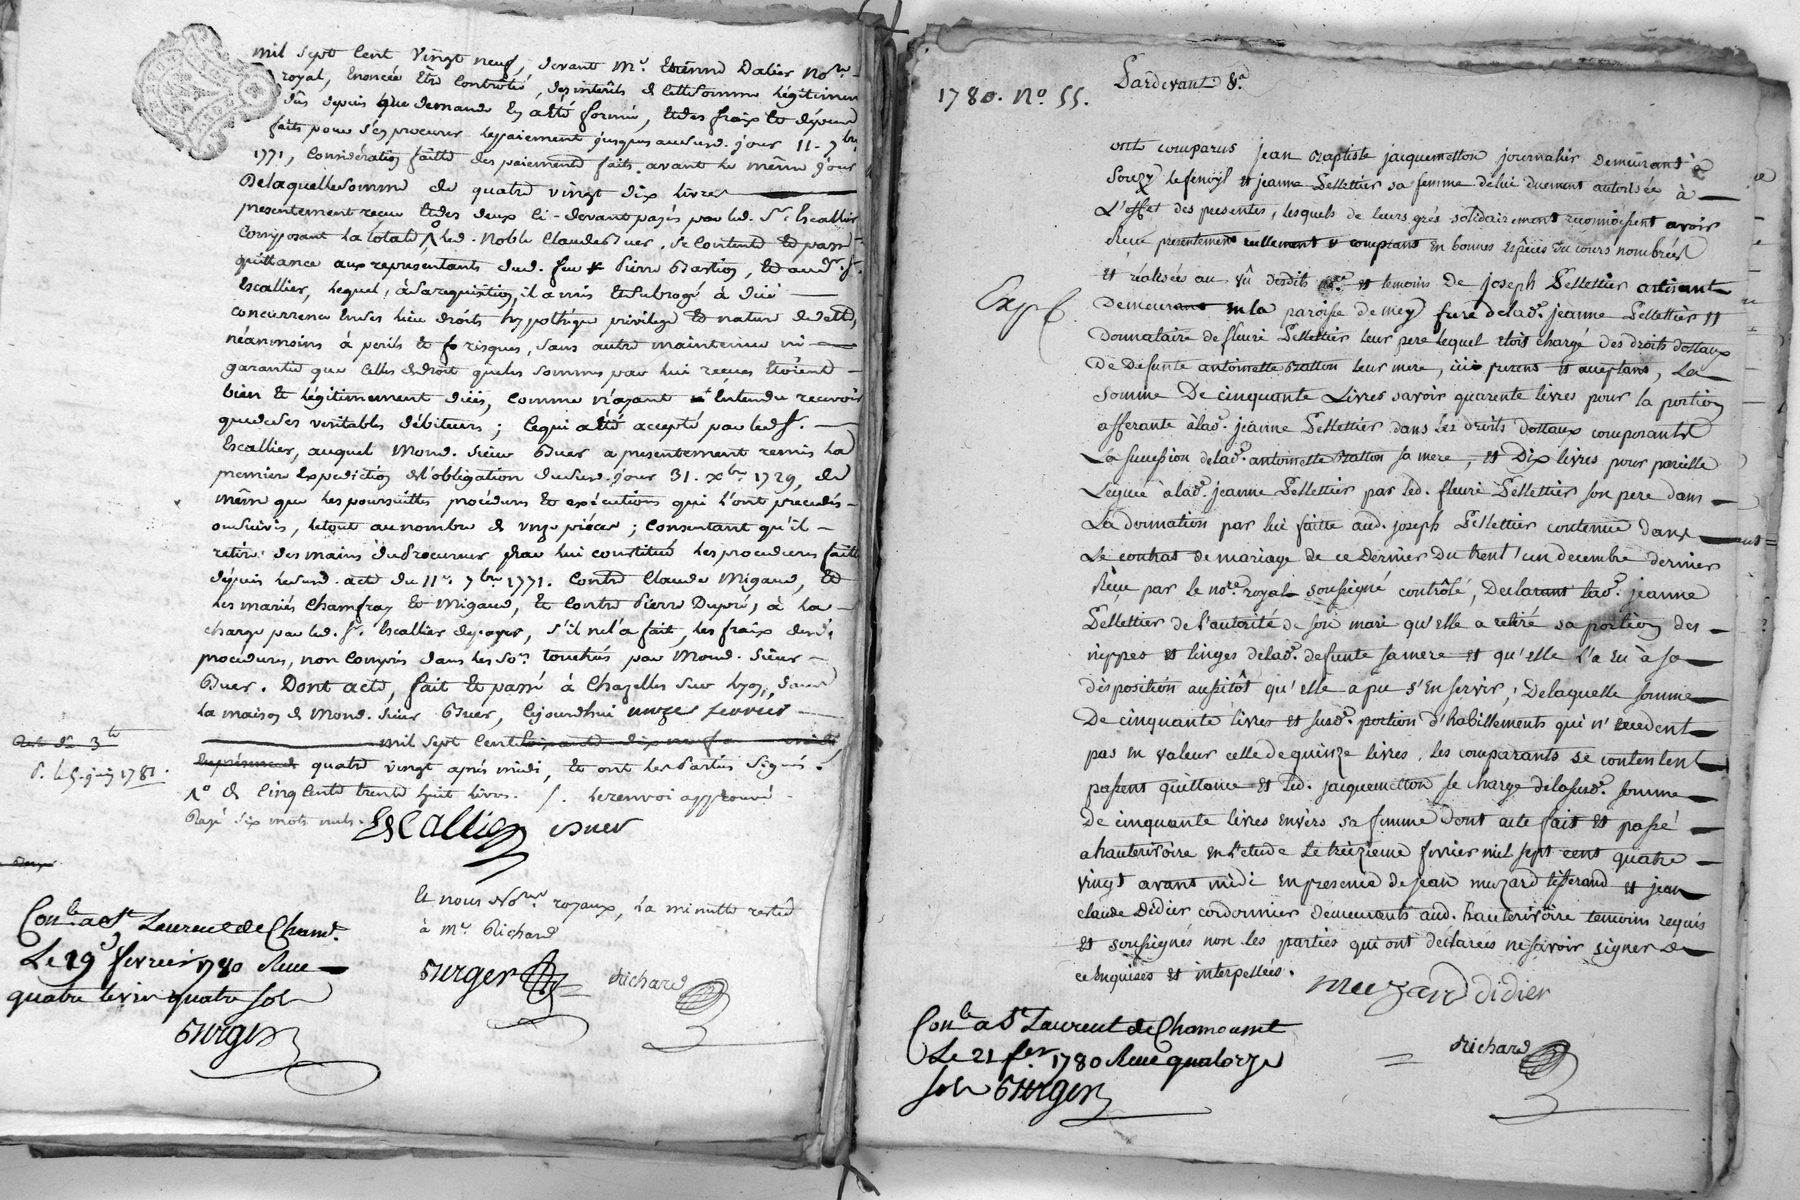 mil sept cent vingt neuf, devant Me. Etienne Dalier Nore.
royal, Enoncée Etre Controlée, des interêts de cette Somme légitimem
dûs depuis que demande En a été formée, Et des fraix Et dépens
faits pour s'en procurer le paiement jusques audt. jour 11. 7bre
1771, Considération faitte des paiements faits avant le même jour
De laquelle somme de quatre vingt dix livres
presentement reçue Et des deux ci-devant payés par led. Sr. Escallier
Composant la totale led. Noble Claude Buer, se Contente Et passe
quittance aux représentants dud. feu Pierre Bastion, Et aud. Sr.
Escallier, lequel, à sa requisition, il a mis Et subrogé à düe
concurrence En ses lieu droits hypothèque privilege Et nature de dette,
néanmoins à perils Et risques, sans autre maintenue ni
garantie que Celles de droit que les sommes par lui reçues Etoient
bien Et légitimement düës, Comme n'ayant Entendu recevoir
que de ses veritables débiteurs ; Ce qui a été accepté par led. Sr.
Escallier, auquel Mond. sieur Buer a presentement remis la
premiere Expedition de l'obligation dud. jour 31. xbre 1729, de
même que les poursuittes procédures Et exécutions qui l'ont precedés
ou suivis, le tout au nombre de onze pièces ; Consentant qu'il
retire des mains du Procureur par lui constitué les procedures faittes
depuis led. acte du 11e. 7bre 1771. Contre Claude Migaud, Et
les mariés Chamfray Et Migaud, Et Contre Pierre Dupré, à la
charge par led. Sr. Escallier de payer, s'il ne l'a fait, les fraix desd.
procedures, non Compris dans les Soes. touchées par Mond. sieur
Buer. Dont acte, fait Et passé à Chazelles sur lyon, dans
la maison de Mond. sieur Buer, Cejourd'hui onze fevrier
mil sept Cent soixante dix neuf
quatre vingt après midi, Et ont les Parties Signé.
de Cinq Cents trente huit livres. le renvoi approuvé
Rayé six mots nuls.
P. le 5. juin 1781.
Escallier Buer
Et nous Nores royaux, la minutte restée
à Me. Richard
Conlé a St Laurent de Chamt.
Le 19 fevrier 1780 Reçu
quatre livres quatre sols
Burger
Burger Richard
1780. No. 55.
Pardevant &a
ont comparus jean Baptiste jacquemetton journalier demeurant à
Souzy le fenoyl et jeanne Pellettier sa femme de lui duement autorisée à
L'effet des presentes, lesquels de leurs grés solidairement reconnoissent avoir
Reçu presentement reellement & comptant En bonnes Espèces du cours nombrées
et réalisées au vû desdits nore. et temoins De joseph Pellettier artisant
Demeurant en la paroisse de mey frere de lade. jeanne Pellettier
Exp
Donnataire de fleuri Pellettier leur pere lequel etoit chargé des droits dottaux
De Defunte antoinette Ratton leur mere, ici present et acceptant, La
somme De cinquante Livres savoir quarente livres pour la portion
afferante à lade. jeanne Pellettier dans les droits dottaux composants
La succession de lade. antoinette Ratton sa mere, et Dix livres pour pareille
Leguée à lade. jeanne Pellettier par led. fleuri Pellettier son pere dans
La donnation par lui faitte aud. joseph Pellettier contenue dans
Le contrat de mariage de ce dernier du trent'un decembre dernier
Reçu par le nore. royal soussigné contrôlé, Declarant lade. jeanne
Pellettier de l'autorité de son mari qu'elle a retiré sa portion des
nippes et linges de lade. defunte sa mere et qu'elle l'a eu à sa
disposition aussitôt qu'elle a pu s'en servir, De laquelle somme
De cinquante livres et susde. portion d'habillements qui n'excedent
pas en valeur celle de quinze livres, les comparants se contentent
passent quittance et led. jacquemetton se charge de la susde. somme
de cinquante livres envers sa femme Dont acte fait et passé
a hauterivoire en l'etude Le treizieme fevrier mil sept cent quatre
vingt avant midi en presence de jean muzard tisserand et jean
claude Didier cordonnier demeurants aud. hauterivoire temoins requis
et soussignés non les parties qui ont déclarées ne savoir signer de
ce enquises et interpellées.
Muzard didier
Conlé a St Laurent de Chamousset
Le 21 fev 1780 Reçu quatorze
sols Burger
Richard